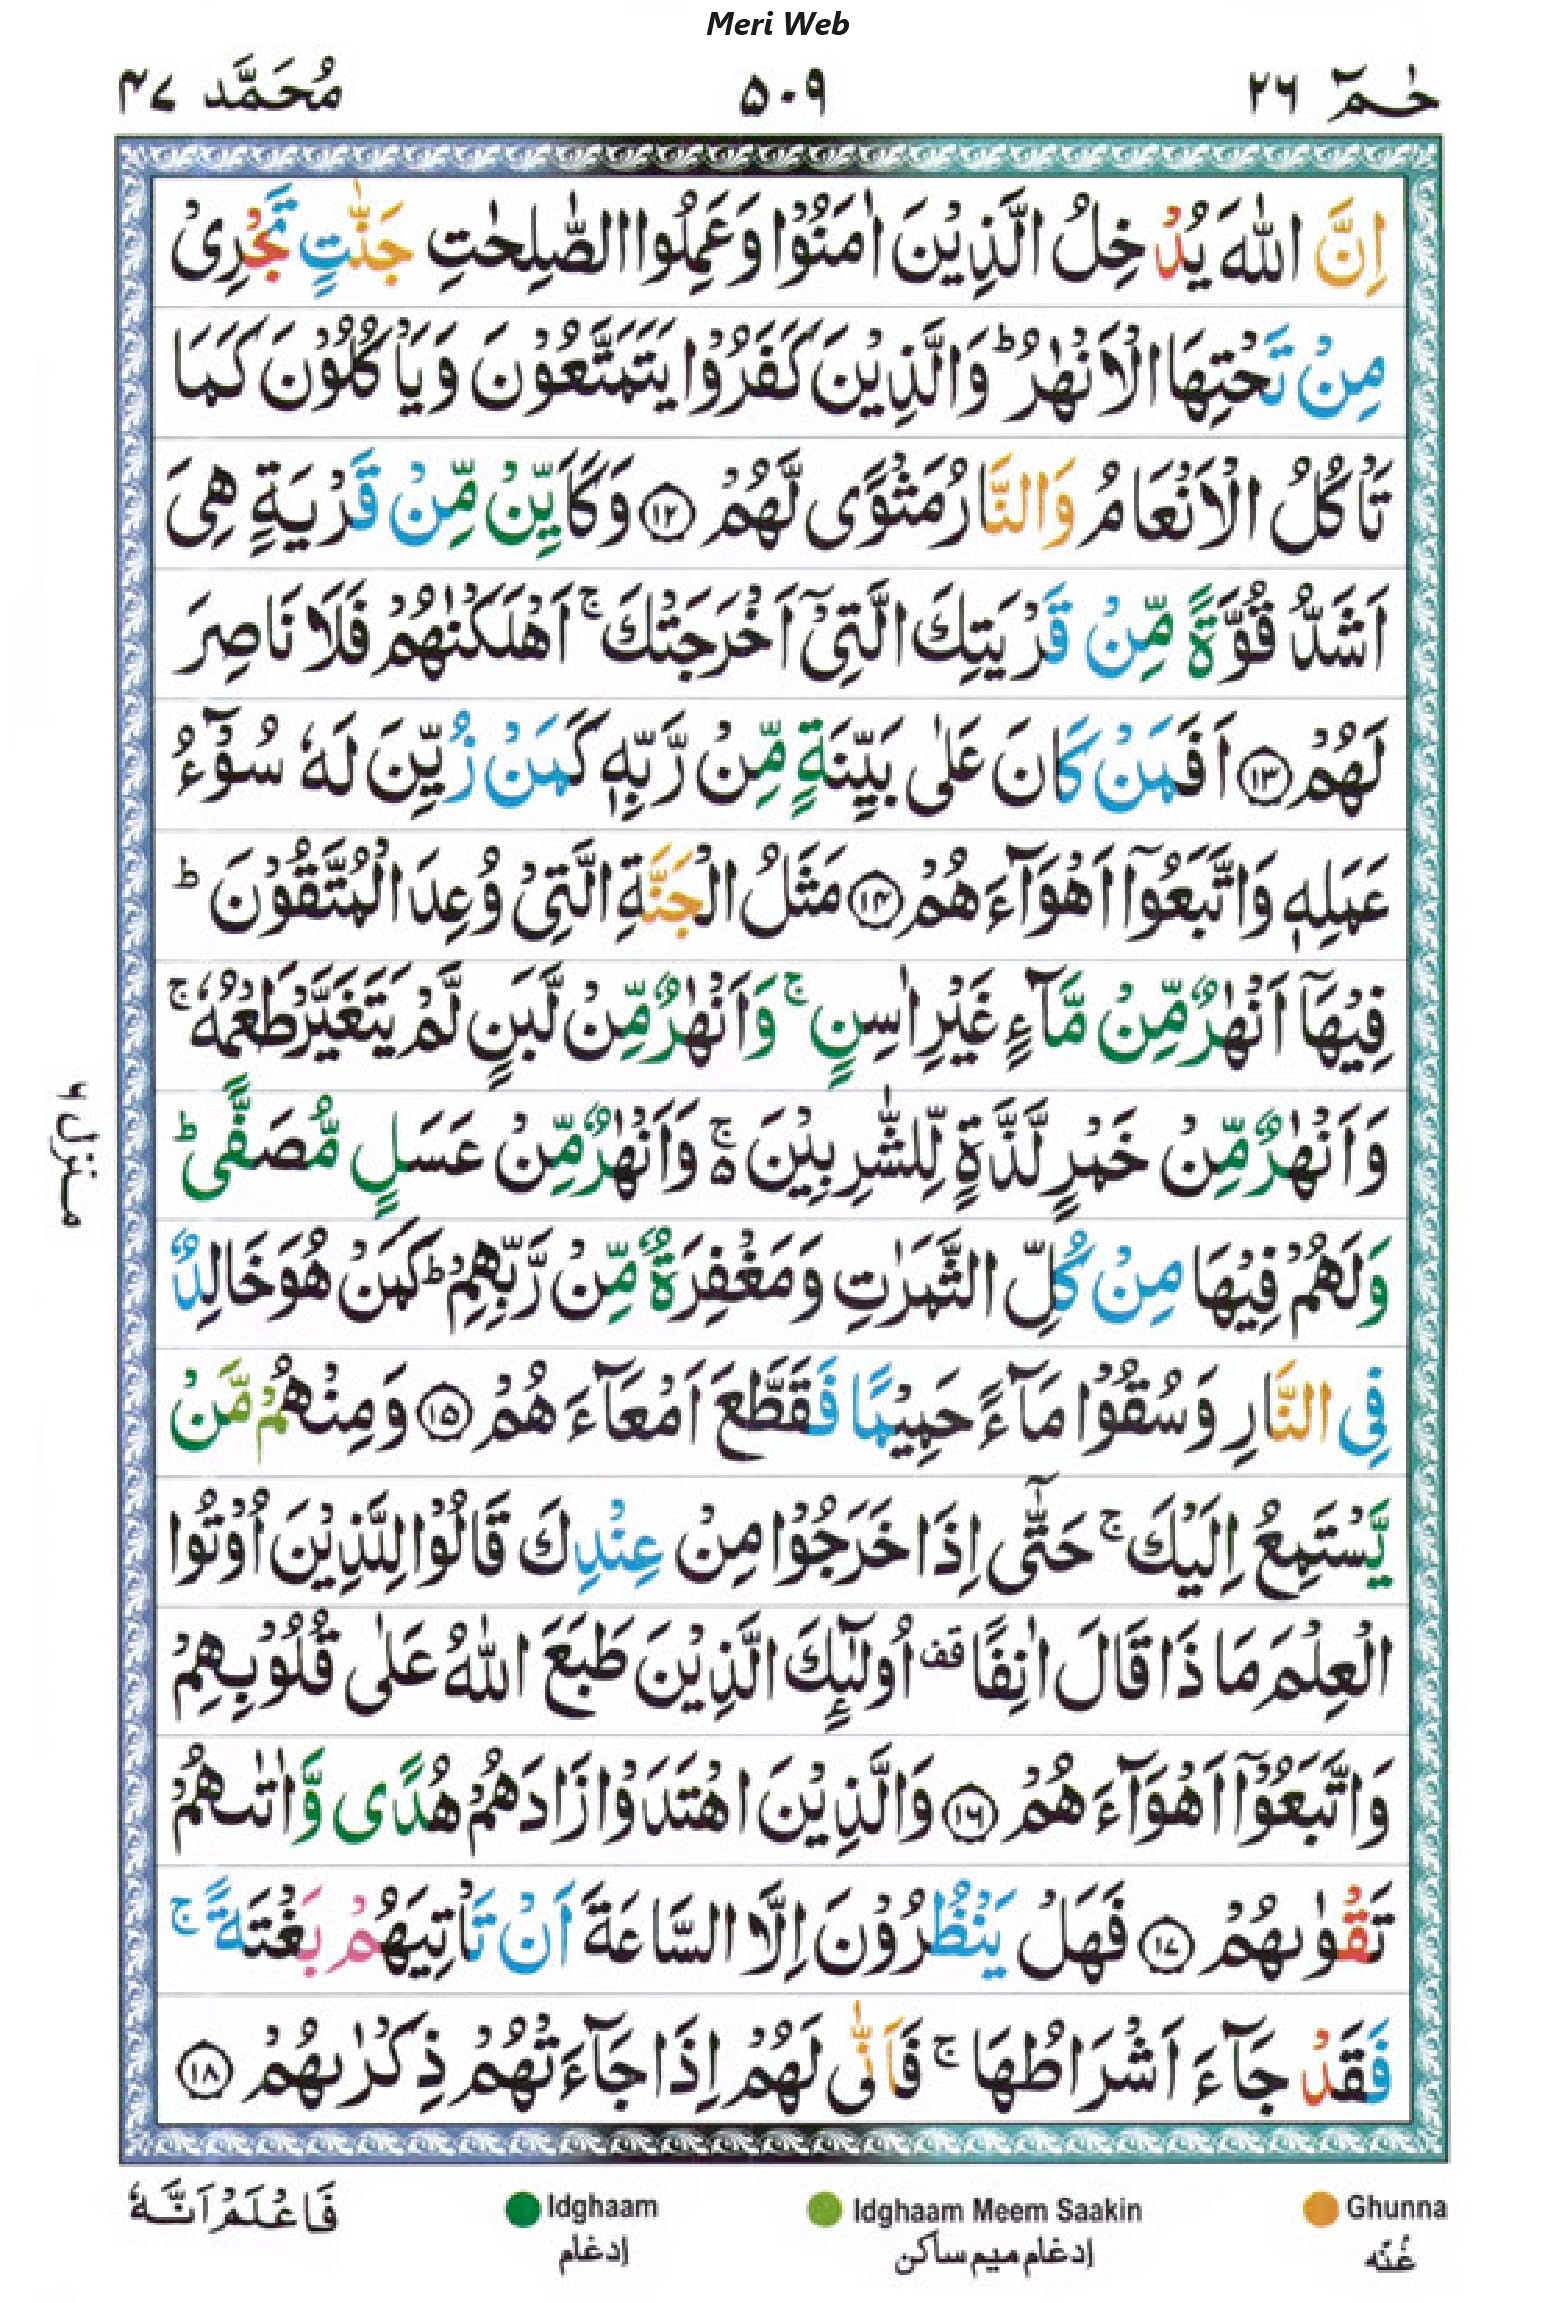 Meri Web
حٰمٓ ۲۶ ۵۰۹ مُحَمَّد ۴۷
اِنَّ اللّٰهَ يُدْخِلُ الَّذِيْنَ اٰمَنُوْا وَعَمِلُوا الصّٰلِحٰتِ جَنّٰتٍ تَجْرِىْ
مِنْ تَحْتِهَا الْاَنْهٰرُ ؕ وَالَّذِيْنَ كَفَرُوْا يَتَمَتَّعُوْنَ وَيَاْكُلُوْنَ كَمَا
تَاْكُلُ الْاَنْعَامُ وَالنَّارُ مَثْوًى لَّهُمْ ۝۱۲ وَكَاَيِّنْ مِّنْ قَرْيَةٍ هِىَ
اَشَدُّ قُوَّةً مِّنْ قَرْيَتِكَ الَّتِىْۤ اَخْرَجَتْكَ ۚ اَهْلَكْنٰهُمْ فَلَا نَاصِرَ
لَهُمْ ۝۱۳ اَفَمَنْ كَانَ عَلٰى بَيِّنَةٍ مِّنْ رَّبِّهٖ كَمَنْ زُيِّنَ لَهٗ سُوْٓءُ
عَمَلِهٖ وَاتَّبَعُوْۤا اَهْوَآءَهُمْ ۝۱۴ مَثَلُ الْجَنَّةِ الَّتِىْ وُعِدَ الْمُتَّقُوْنَ ؕ
فِيْهَاۤ اَنْهٰرٌ مِّنْ مَّآءٍ غَيْرِ اٰسِنٍ ۚ وَاَنْهٰرٌ مِّنْ لَّبَنٍ لَّمْ يَتَغَيَّرْ طَعْمُهٗ ۚ
وَاَنْهٰرٌ مِّنْ خَمْرٍ لَّذَّةٍ لِّلشّٰرِبِيْنَ ۚ۬ وَاَنْهٰرٌ مِّنْ عَسَلٍ مُّصَفًّى ؕ
وَلَهُمْ فِيْهَا مِنْ كُلِّ الثَّمَرٰتِ وَمَغْفِرَةٌ مِّنْ رَّبِّهِمْ ؕ كَمَنْ هُوَ خَالِدٌ
فِى النَّارِ وَسُقُوْا مَآءً حَمِيْمًا فَقَطَّعَ اَمْعَآءَهُمْ ۝۱۵ وَمِنْهُمْ مَّنْ
يَّسْتَمِعُ اِلَيْكَ ۚ حَتّٰۤى اِذَا خَرَجُوْا مِنْ عِنْدِكَ قَالُوْا لِلَّذِيْنَ اُوْتُوا
الْعِلْمَ مَاذَا قَالَ اٰنِفًا قف اُولٰٓئِكَ الَّذِيْنَ طَبَعَ اللّٰهُ عَلٰى قُلُوْبِهِمْ
وَاتَّبَعُوْۤا اَهْوَآءَهُمْ ۝۱۶ وَالَّذِيْنَ اهْتَدَوْا زَادَهُمْ هُدًى وَّاٰتٰىهُمْ
تَقْوٰىهُمْ ۝۱۷ فَهَلْ يَنْظُرُوْنَ اِلَّا السَّاعَةَ اَنْ تَاْتِيَهُمْ بَغْتَةً ۚ
فَقَدْ جَآءَ اَشْرَاطُهَا ۚ فَاَنّٰى لَهُمْ اِذَا جَآءَتْهُمْ ذِكْرٰىهُمْ ۝۱۸
منزل ۶
فَاعْلَمْ اَنَّهٗ
Idghaam Idghaam Meem Saakin Ghunna
إدغام إدغام ميم ساكن غُنّه